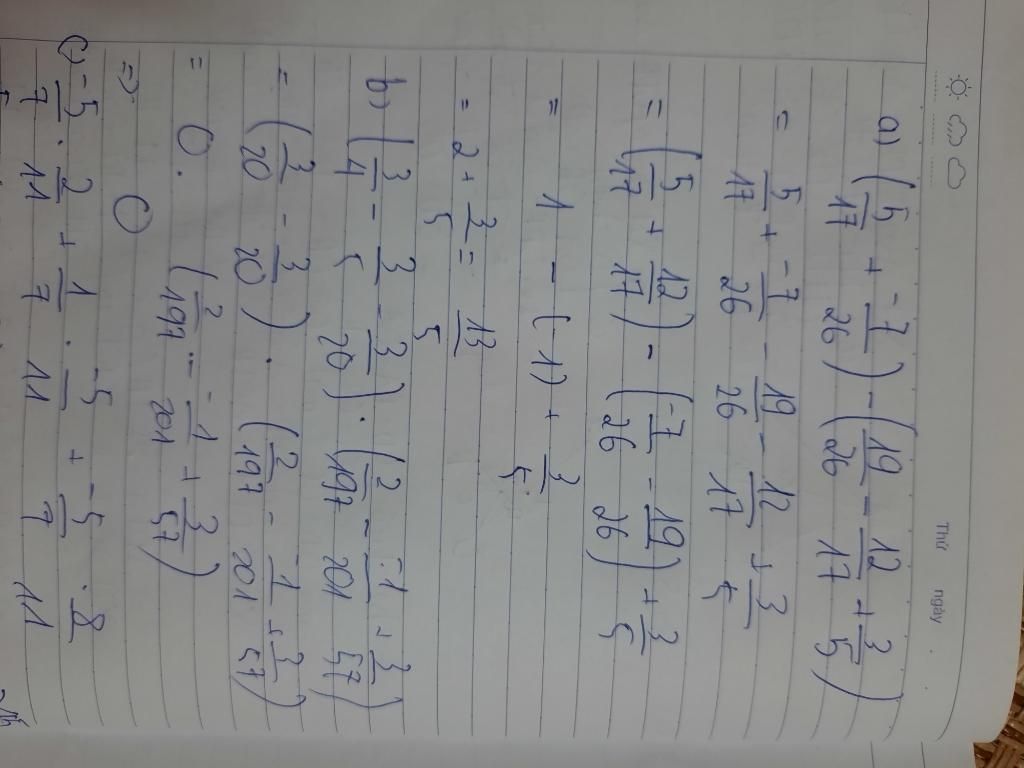 Thứ ngày
a) (5/17 + -7/26) - (19/26 - 12/17 + 3/5)
= 5/17 + -7/26 - 19/26 - 12/17 + 3/5
= (5/17 + 12/17) - (-7/26 - 19/26) + 3/5
= 1 - (-1) + 3/5
= 2 + 3/5 = 13/5
b) (3/4 - 3/5 - 3/20) . (2/197 - -1/201 + 3/57)
= (3/20 - 3/20) . (2/197 - -1/201 + 3/57)
= 0 . (2/197 - -1/201 + 3/57)
=> 0
c) -5/7 . 2/11 + 1/7 . -5/11 + -5/7 . 8/11